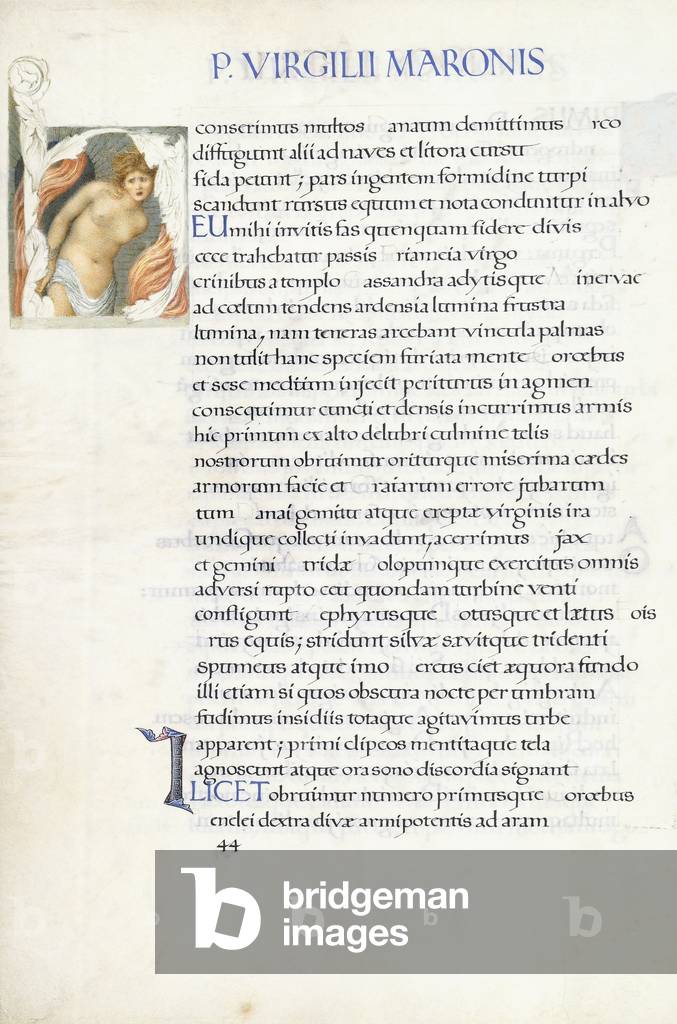 P. VIRGILII MARONIS
conserimus multos anaum demittimus rco
diffugiunt alii ad naves et litora cursu
fida petunt; pars ingentem formidine turpi
scandunt rursus equum et nota conduntur in alvo
EU mihi invitis fas quenquam fidere divis
ecce trahebatur passis riameia virgo
crinibus a templo assandra adytisque inervae
ad cœlum tendens ardentia lumina frustra
lumina, nam teneras arcebant vincula palmas
non tulit hanc speciem furiata mente orœbus
et sese medium injecit periturus in agmen
consequimur cuncti et densis incurrimus armis
hic primum ex alto delubri culmine telis
nostrorum obruimur oriturque miserima cædes
armorum facie et raiarum errore jubarum
tum anai gemitu atque ereptæ virginis ira
undique collecti invadunt, acerrimus jax
et gemini tridæ olopumque exercitus omnis
adversi rupto ceu quondam turbine venti
confligunt ephyrusque otusque et lætus ois
rus equis; stridunt silvæ sævitque tridenti
spumeus atque imo ereus ciet æquora fundo
illi etiam si quos obscura nocte per umbram
fudimus insidiis totaque agitavimus urbe
apparent; primi clipeos mentitaque tela
agnoscunt atque ora sono discordia signant
ILICET obruimur numero primusque orœbus
enelei dextra divæ armipotentis ad aram
44
bridgeman
images